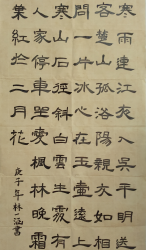 寒雨連江夜入吳平明送
客楚山孤洛陽親友如相
問一片冰心在玉壺遠上
寒山石徑斜白雲生處有
人家停車坐愛楓林晚霜
葉紅於二月花
庚子年林一涵書